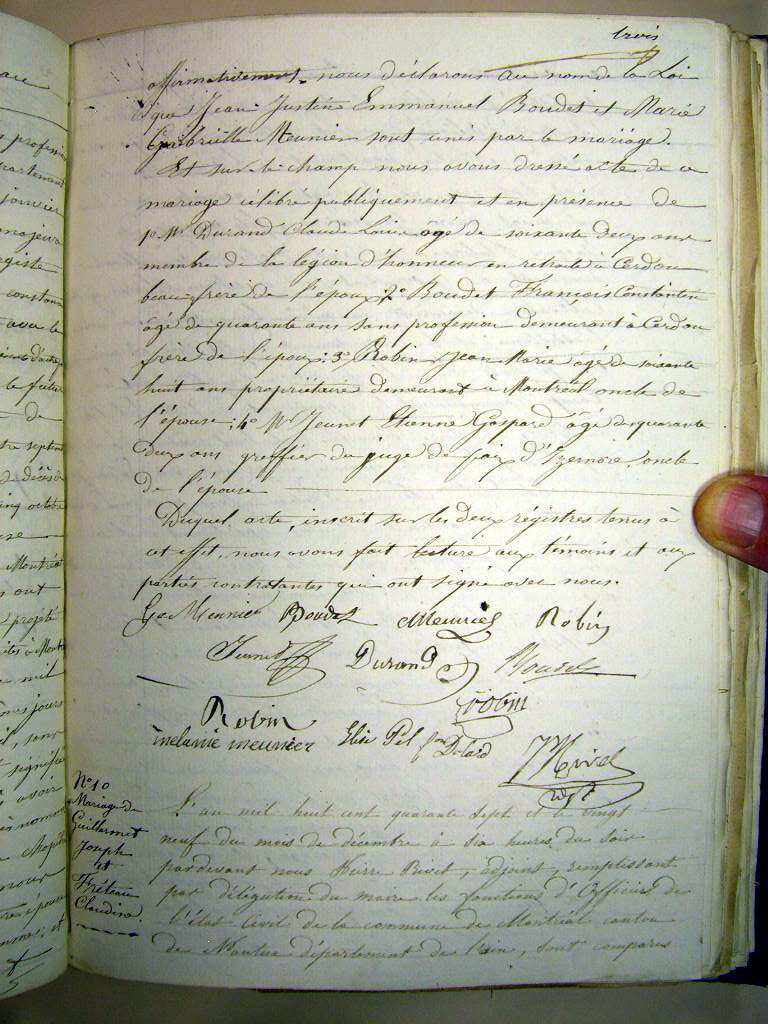 trois
affirmativement, nous déclarons au nom de la Loi
que Jean Justin Emmanuel Boudet et Marie
Gabrielle Meunier sont unis par le mariage.
Et sur le champ nous avons dressé acte de ce
mariage célébré publiquement et en présence de
1º Mr Durand Claude Louis âgé de soixante deux ans
membre de la légion d'honneur en retraite à Cerdon
beau frère de l'époux; 2º Boudet François Constantin
âgé de quarante ans sans profession demeurant à Cerdon
frère de l'époux; 3º Robin Jean Marie âgé de soixante
huit ans propriétaire demeurant à Montréal oncle de
l'épouse; 4º Mr Jeunet Etienne Gaspard âgé de quarante
deux ans greffier du juge de paix d'Izernore, oncle
de l'épouse
Duquel acte, inscrit sur les deux régistres tenus à
cet effet, nous avons fait lecture aux témoins et aux
parties contractantes qui ont signé avec nous.
Ge Meunier Boudet Meunier Robin
Jeunet Durand Boudet
Robin Robin
melanie meunier Elise
Rivet
adjt
Nº 10
Mariage de
Guillermet
Joseph
et
Fréteau
Claudine.
L'an mil huit cent quarante sept et le vingt
neuf du mois de décembre à six heures du soir
pardevant nous Pierre Rivet, adjoint, remplissant
par délégation du maire les fonctions d'Officier de
l'état civil de la commune de Montréal canton
de Nantua département de l'ain, sont comparus